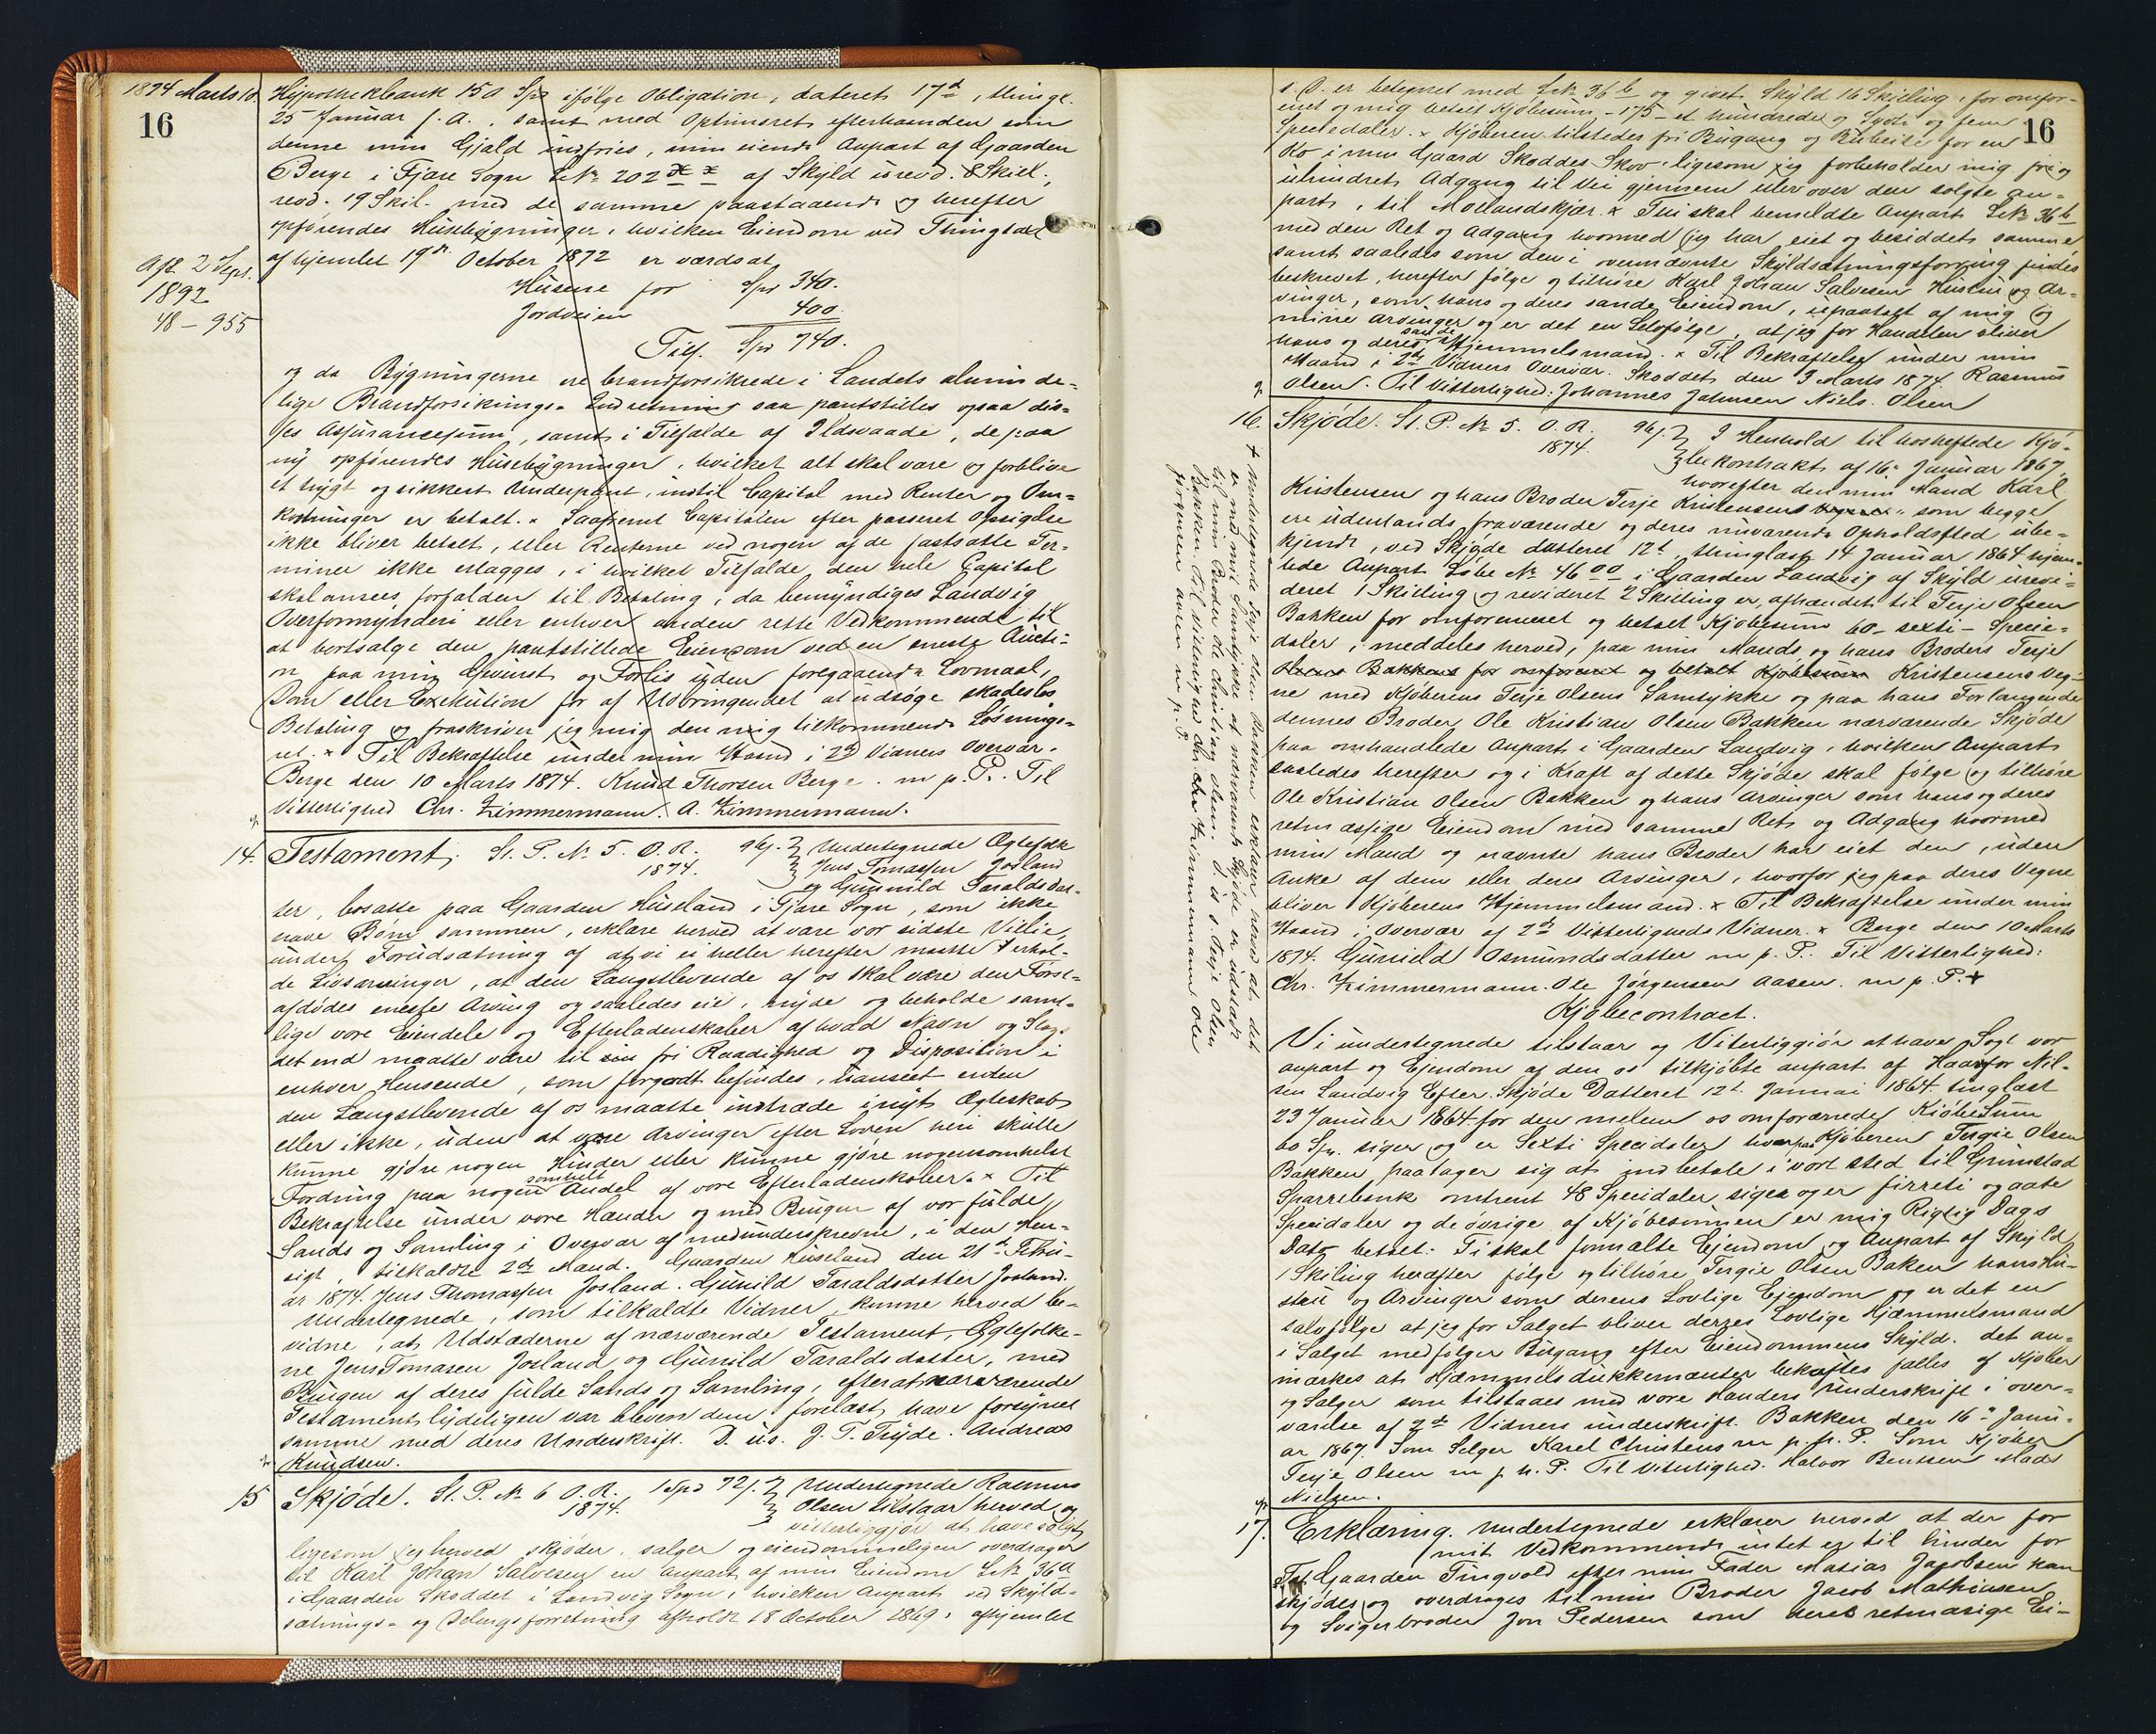 1874 Marts 10.
16
Hypothekbank 150 Spd ifølge Obligation, dateret 17d, thingl.
25 Januar f. A., samt med Optrinsret efterhaanden som
denne min Gjæld indfries, min eiende Anpart af Gaarden
Berge i Fjære Sogn L.No 202 af Skyld urevd. 8 Skill.,
revd. 19 Skil. med de samme paastaaende og herefter
opførendes Husebygninger, hvilken Eiendom ved Thingsvd
afhjemlet 19de October 1872 er værdsat
Husene for Spd 340.
Jordveien 400.
Tils. Spd 740.
Afl. 2 Sept.
1892
48 - 955
og da Bygningerne ere brandforsikrede i Landets alminde-
lige Brandforsikrings-Indretning saa pantstilles ogsaa dis-
ses Assurancesum, samt i Tilfælde af Ildsvaade, de paa
ny opførendes Husebygninger, hvilket alt skal være og forblive
et trygt og sikkert Underpant, indtil Capital med Renter og Om-
kostninger er betalt. × Saafremt Capitalen efter passeret Opsigelse
ikke bliver betalt, eller Renterne ved nogen af de fastsatte Ter-
miner ikke erlægges, i hvilket Tilfælde den hele Capital
skal ansees forfalden til Betaling, da bemyndiges Landvig
Overformynderi eller enhver anden rette Vedkommende til
at bortsælge den pantstillede Eiendom ved en eneste Aucti-
on paa min Gevinst og Forlis uden foregaaende Lovmaal,
Dom eller Exekution for af Udbringendet at udsøge skadesløs
Betaling og fraskriver jeg mig den mig tilkommende Løsnings-
ret. × Til Bekræftelse under min Haand i 2d Vidners Overvær.
Berge den 10 Marts 1874. Knud Thorsen Berge. m. p. P. Til
Vitterlighed Chr. Zimmermann. A. Zimmermann.
14. Testament. St. P. No 5. O. R. 1874. 96 s. Undertegnede Ægtefolk
Jens Tomassen Josland
og Gunnild Taraldsdat-
ter, bosatte paa Gaarden Huseland i Fjære Sogn, som ikke
have Børn sammen, erklære herved at være vor sidste Villie,
under Forudsætning af at vi ei heller herefter maatte erhol-
de Livsarvinger, at den Længstlevende af os skal være den Først-
afdødes eneste Arving og saaledes eie, nyde og beholde samt-
lige vore Eiendele og Efterladenskaber af hvad Navn og Slags
det end maatte være til sin fri Raadighed og Disposition i
enhver Henseende, som forgodt befindes, uanseet enten
den Længstlevende af os maatte indtræde i nyt Ægteskab
eller ikke, uden at vore Arvinger efter Loven heri skulle
kunne gjøre nogen Hinder eller kunne gjøre nogensomhelst
Fordring paa nogen somhelst Andel af vore Efterladenskaber. × Til
Bekræftelse under vore Hænder og med Brugen af vor fulde
Sands og Samling i Overvær af medunderskrevne, i den Hen-
sigt, tilkaldte 2de Mænd. Gaarden Huseland den 21d Febru-
ar 1874. Jens Thomassen Josland. Gunild Taraldsdatter Josland.
Undertegnede, som tilkaldte Vidner, kunne herved be-
vidne, at Udstæderne af nærværende Testament, Ægtefolke-
ne Jens Tomasen Josland og Gunild Taraldsdatter, med
Brugen af deres fulde Sands og Samling, efterat nærværende
Testament lydeligen var bleven dem forelæst, have forsynet
samme med deres Underskrift. D. u. s. J. T. Tryde. Andreas
Knudsen.
15 Skjøde. St. P. No 6 O. R. 1874. 1 Spd 72 s. Undertegnede Rasmus
Olsen tilstaar herved og
vitterliggjør at have solgt
ligesom jeg herved skjøder, sælger og eiendommeligen overdrager
til Karl Johan Salvesen en Anpart af min Eiendom L.No 36a
i Gaarden Skoddet i Landvig Sogn, hvilken Anpart ved Skyld-
sætnings- og Delingsforretning afholdt 18 October 1869, afhjemlet
16
s. D. er betegnet med L.No 36b og givet Skyld 16 Skilling, for omfor-
enet og mig betalt Kjøbesum -175- et hundrede og Sytti og fem
Speciedaler. × Kjøberen tilstedes fri Bugang og Bubeite for en
Ko i min Gaard Skoddes Skov, ligesom jeg forbeholder mig fri og
uhindret Adgang til Vei gjennem eller over den solgte An-
part, til Mollandskjær. × Thi skal bemeldte Anpart L.No 36b
med den Ret og Adgang hvormed jeg har eiet og besiddet samme
samt saaledes som den i ovennævnte Skyldsætningsforretning findes
beskrevet, herefter følge og tilhøre Karl Johan Salvesen Hustru og Ar-
vinger, som hans og deres sande Eiendom, upaatalt af mig og
mine Arvinger og er det en Selvfølge, at jeg for Handelen bliver
hans og deres sande Hjemmelsmand. × Til Bekræftelse under min
Haand i 2de Vidners Overvær. Skoddet den 3 Marts 1874. Rasmus
Olsen. Til Vitterlighed: Johannes Johnsen Niels Olsen
16. Skjøde. St. P. No 5. O. R. 1874. 96 s. I Henhold til vosheftede Kjø-
bekontrakt af 16de Januar 1867,
hvorefter den min Mand Karl
Kristensen og hans Broder Terje Kristensens som begge
ere udenlands fraværende og deres nuværende Opholdssted ube-
kjendt, ved Skjøde datteret 12t, thinglæst 14 Januar 1864 hjem-
lede Anpart Løbe No 46 i Gaarden Landvig af Skyld urevi-
deret 1 Skilling og revideret 2 Skilling er afhændet til Terje Olsen
Bakken for omforenet og betalt Kjøbesum 60- sexti - Specie-
daler, meddeles herved, paa min Mands og hans Broders Terje
Olsens Bakkens for omforenet og betalt Kjøbesum Kristensens Veg-
ne med Kjøberens Terje Olsens Samtykke og paa hans Forlangende
dennes Broder Ole Kristian Olsen Bakken nærværende Skjøde
paa omhandlede Anpart i Gaarden Landvig, hvilken Anpart
saaledes herefter og i Kraft af dette Skjøde skal følge og tilhøre
Ole Kristian Olsen Bakken og hans Arvinger som hans og deres
retmæssige Eiendom med samme Ret og Adgang hvormed
min Mand og nævnte hans Broder har eiet den, uden
Anke af dem eller deres Arvinger, hvorfor jeg paa deres Vegne
bliver Kjøberens Hjemmelsmand. × Til Bekræftelse under min
Haand i Overvær af 2de Vitterligheds Vidner. × Berge den 10 Marts
1874. Gunild Osmundsdatter m. p. P. Til Vitterlighed:
Chr. Zimmermann. Ole Jørgensen Aasen. m. p. P. +
+ Undertegnede Terje Olsen Bakken erklærer herved at det
er med mit Samtykke at nærværende Skjøde er udstædt
til min Broder Ole Christian Olsen. D. u. s. Terje Olsen
Bakken. Til Vitterlighed Chr. Zimmermann Ole
Jørgensen Aasen m. p. P.
Kjøbecontract.
Vi undertegnede tilstaar og Viterliggiør at have Solgt vor
anpart og Ejendom af den os tilkjøbte anpart af Haavor Nil-
sen Landvig Efter Skjøde Datteret 12t Januar 1864 tinglæst
23 Januar 1864 for den melem os omforænede Kiøbesum
60 Sp. siger og er Sexti Specidaler hvorpaa Kjøberen Tergie Olsen
Bakken paatager sig at indbetale i vort sted til Grimstad
Sparrebank omtrent 48 Specidaler siger og er firreti og aate
Specidaler og de øvrige af Kjøbesummen er mig Rigtig Dags
Dato betalt. Ti skal formælte Ejendom og Anpart af Skyld
1 Skiling heræfter følge og tilhøre Tergie Olsen Baken hans Hu-
stru og Arvinger som deres Lovlige Ejendom og er det en
salvfølge at jeg for Salget bliver derres Lovlige Hjæmmelsmand
i Salget medfølger Bugang efter Eiendommens Skyld. det an-
mærkes at Hjæmmelsdukkementer bekaftes falles af Kjøber
og Salger som tilstaaes med vore Handers Underskrift i over-
værelse af 2de Vidners underskrift. Bakken den 16de Janu-
ar 1867. Som Selger Karel Christens m. p. P. Som Kjøber
Terje Olsen m p h. P. Til Viterlighed. Halvor Bentsen Mads
Nielsen.
17. Erklæring. Undertegnede erklærer herved at der for
mit Vedkommende intet er til hinder for
at Gaarden Tingvold efter min Fader Matias Jacobsen kan
skjødes og overdrages til min Broder Jacob Mathiasen
og Svigerbroder Jon Pedersen som deres retmæsige Ei-